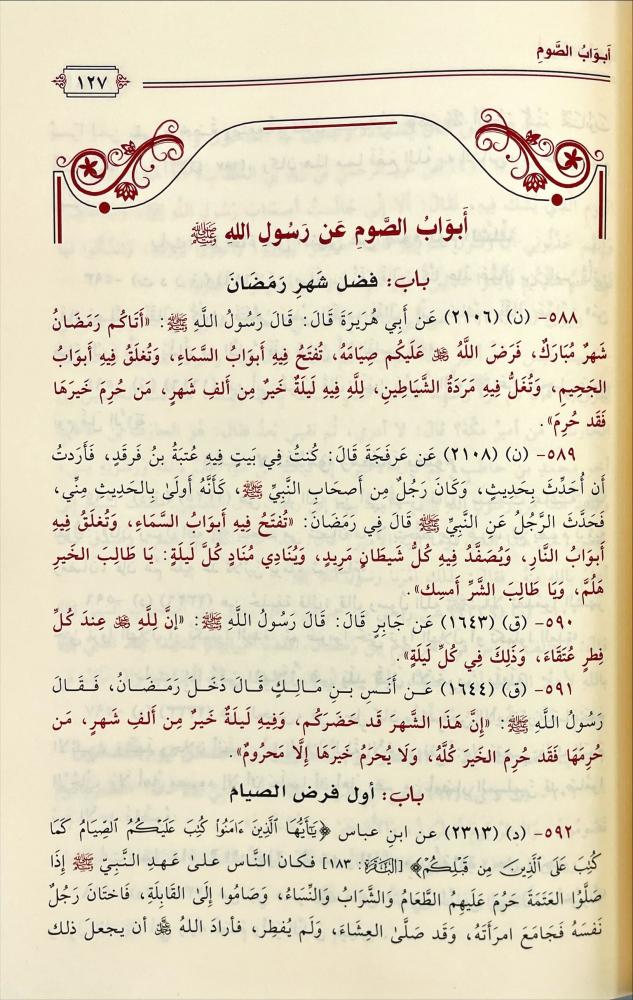 أبوَابُ الصَّومِ
١٢٧
أَبوَابُ الصَّومِ عَن رَسُولِ اللهِ ﷺ
باب: فضل شَهرِ رَمَضَانَ
٥٨٨- (ن) (٢١٠٦) عَن أَبِي هُرَيرَةَ قَالَ: قَالَ رَسُولُ اللَّهِ ﷺ: «أَتَاكُم رَمَضَانُ
شَهرٌ مُبَارَكٌ، فَرَضَ اللَّهُ ﷿ عَلَيكُم صِيَامَهُ، تُفتَحُ فِيهِ أَبوَابُ السَّمَاءِ، وَتُغلَقُ فِيهِ أَبوَابُ
الجَحِيمِ، وَتُغَلُّ فِيهِ مَرَدَةُ الشَّيَاطِينِ، لِلَّهِ فِيهِ لَيلَةٌ خَيرٌ مِن أَلفِ شَهرٍ، مَن حُرِمَ خَيرَهَا
فَقَد حُرِمَ».
٥٨٩- (ن) (٢١٠٨) عَن عَرفَجَةَ قَالَ: كُنتُ فِي بَيتٍ فِيهِ عُتبَةُ بنُ فَرقَدٍ، فَأَرَدتُ
أَن أُحَدِّثَ بِحَدِيثٍ، وَكَانَ رَجُلٌ مِن أَصحَابِ النَّبِيِّ ﷺ، كَأَنَّهُ أَولَىٰ بِالحَدِيثِ مِنِّي،
فَحَدَّثَ الرَّجُلُ عَنِ النَّبِيِّ ﷺ قَالَ فِي رَمَضَانَ: «تُفتَحُ فِيهِ أَبوَابُ السَّمَاءِ، وَتُغلَقُ فِيهِ
أَبوَابُ النَّارِ، وَيُصَفَّدُ فِيهِ كُلُّ شَيطَانٍ مَرِيدٍ، وَيُنَادِي مُنَادٍ كُلَّ لَيلَةٍ: يَا طَالِبَ الخَيرِ
هَلُمَّ، وَيَا طَالِبَ الشَّرِّ أَمسِك».
٥٩٠- (ق) (١٦٤٣) عَن جَابِرٍ قَالَ: قَالَ رَسُولُ اللَّهِ ﷺ: «إِنَّ لِلَّهِ ﷿ عِندَ كُلِّ
فِطرٍ عُتَقَاءَ، وَذَلِكَ فِي كُلِّ لَيلَةٍ».
٥٩١- (ق) (١٦٤٤) عَن أَنَسِ بنِ مَالِكٍ قَالَ دَخَلَ رَمَضَانُ، فَقَالَ
رَسُولُ اللَّهِ ﷺ: «إِنَّ هَذَا الشَّهرَ قَد حَضَرَكُم، وَفِيهِ لَيلَةٌ خَيرٌ مِن أَلفِ شَهرٍ، مَن
حُرِمَهَا فَقَد حُرِمَ الخَيرَ كُلَّهُ، وَلَا يُحرَمُ خَيرَهَا إِلَّا مَحرُومٌ».
باب: أول فرض الصيام
٥٩٢- (د) (٢٣١٣) عن ابنِ عباس ﴿يَٰٓأَيُّهَا ٱلَّذِينَ ءَامَنُواْ كُتِبَ عَلَيۡكُمُ ٱلصِّيَامُ كَمَا
كُتِبَ عَلَى ٱلَّذِينَ مِن قَبۡلِكُمۡ﴾ [البَقَرَة: ١٨٣] فكان النَّاس علىٰ عَهدِ النَّبيِّ ﷺ إِذَا
صَلَّوُا العَتَمَةَ حَرُمَ عَلَيهِمُ الطَّعَامُ وَالشَّرَابُ وَالنِّسَاءُ، وَصَامُوا إِلَىٰ القَابِلَةِ، فَاختَانَ رَجُلٌ
نَفسَهُ فَجَامَعَ امرَأَتَهُ، وَقَد صَلَّىٰ العِشَاءَ، وَلَم يُفطِر، فأرادَ اللهُ ﷿ أن يجعلَ ذلك